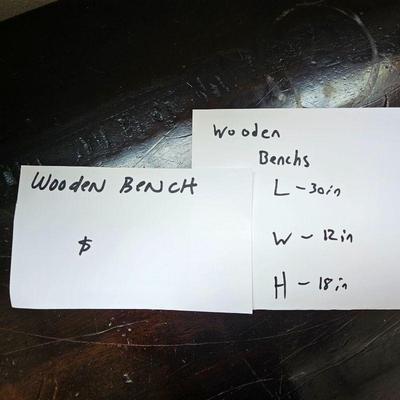 Wooden Bench
$
Wooden
Benchs
L - 30in
W - 12in
H - 18in